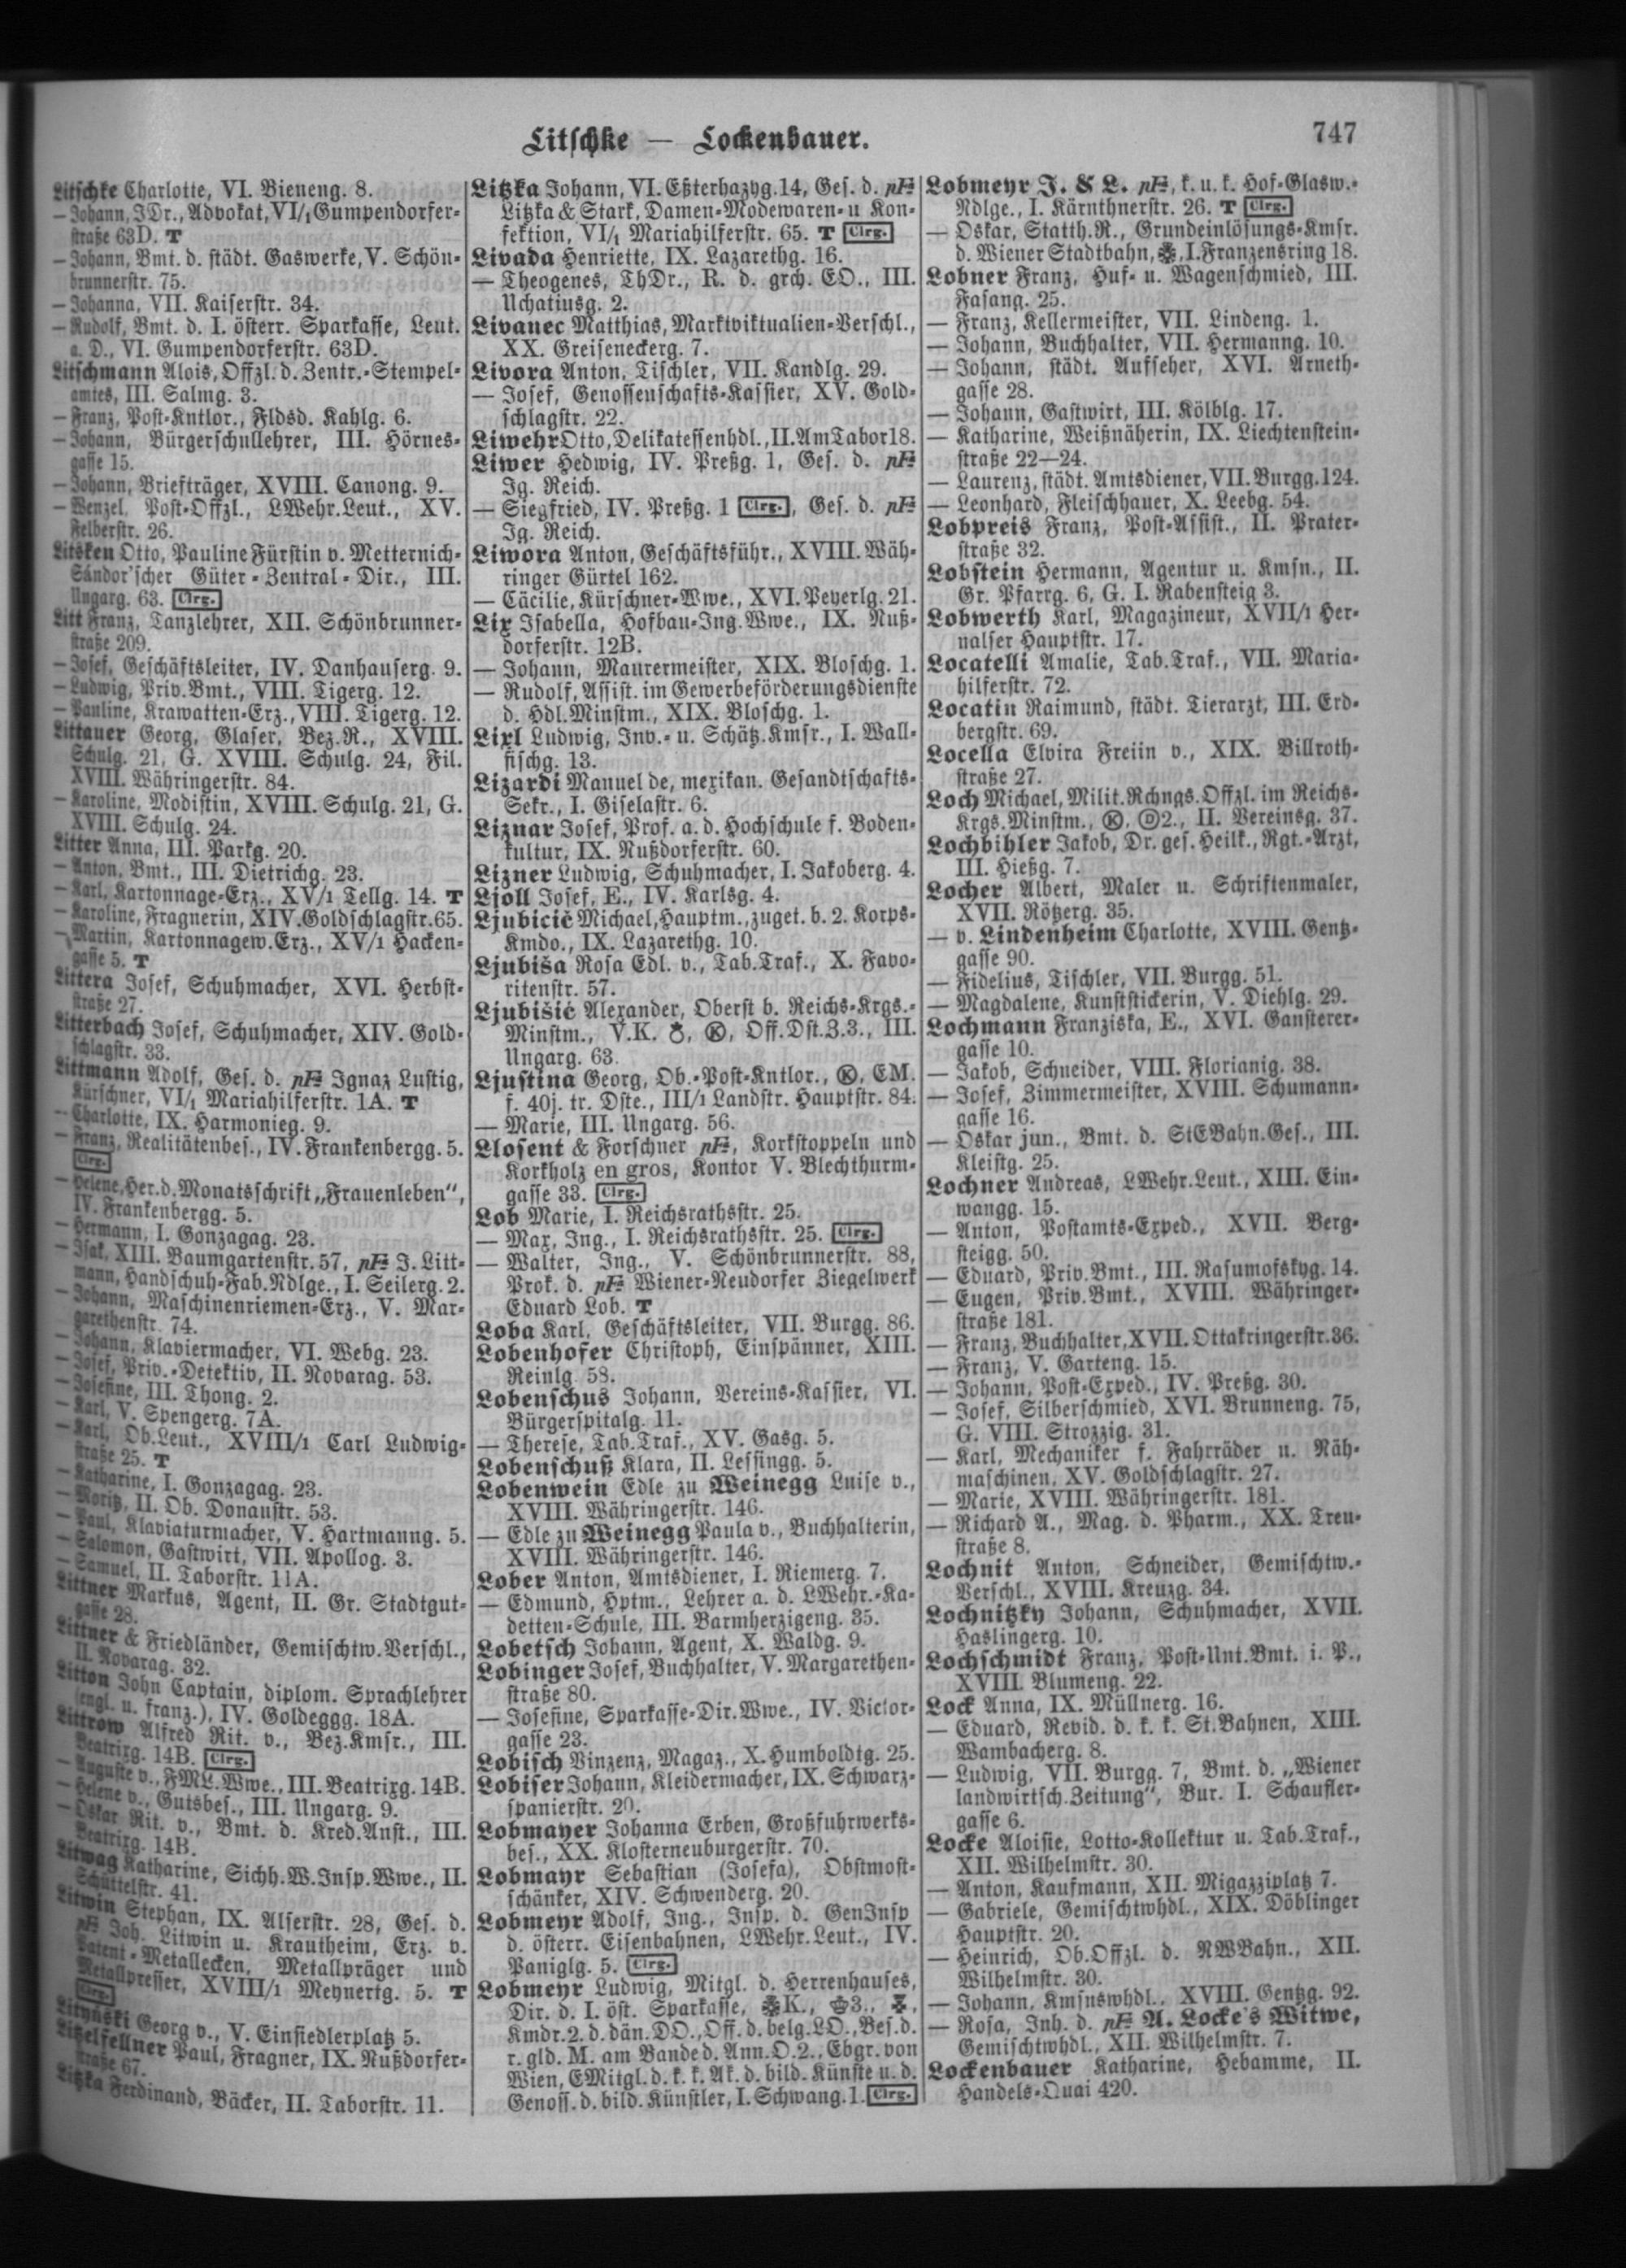 Litschke — Lockenbauer.
747
Litschke Charlotte, VI. Bieneng. 8.
— Johann, JDr., Advokat, VI/1 Gumpendorfer-
straße 63D. T
— Johann, Bmt. d. städt. Gaswerke, V. Schön-
brunnerstr. 75.
— Johanna, VII. Kaiserstr. 34.
— Rudolf, Bmt. d. I. österr. Sparkasse, Leut.
a. D., VI. Gumpendorferstr. 63D.
Litschmann Alois, Offzl. d. Zentr.-Stempel-
amtes, III. Salmg. 3.
— Franz, Post-Kntlor., Fldsd. Kahlg. 6.
— Johann, Bürgerschullehrer, III. Hörnes-
gasse 15.
— Johann, Briefträger, XVIII. Canong. 9.
— Wenzel, Post-Offzl., LWehr.Leut., XV.
Felberstr. 26.
Litsken Otto, Pauline Fürstin v. Metternich-
Sándor'scher Güter-Zentral-Dir., III.
Ungarg. 63. Clrg.
Litt Franz, Tanzlehrer, XII. Schönbrunner-
straße 209.
— Josef, Geschäftsleiter, IV. Danhauserg. 9.
— Ludwig, Priv.Bmt., VIII. Tigerg. 12.
— Pauline, Krawatten-Erz., VIII. Tigerg. 12.
Littauer Georg, Glaser, Bez.R., XVIII.
Schulg. 21, G. XVIII. Schulg. 24, Fil.
XVIII. Währingerstr. 84.
— Karoline, Modistin, XVIII. Schulg. 21, G.
XVIII. Schulg. 24.
Litter Anna, III. Parkg. 20.
— Anton, Bmt., III. Dietrichg. 23.
— Karl, Kartonnage-Erz., XV/1 Tellg. 14. T
— Karoline, Fragnerin, XIV. Goldschlagstr. 65.
— Martin, Kartonnagew.Erz., XV/1 Hacken-
gasse 5. T
Littera Josef, Schuhmacher, XVI. Herbst-
straße 27.
Litterbach Josef, Schuhmacher, XIV. Gold-
schlagstr. 33.
Littmann Adolf, Ges. d. pF Ignaz Lustig,
Kürschner, VI/1 Mariahilferstr. 1A. T
— Charlotte, IX. Harmonieg. 9.
— Franz, Realitätenbes., IV. Frankenbergg. 5.
Clrg.
— Helene, Her. d. Monatsschrift „Frauenleben“,
IV. Frankenbergg. 5.
— Hermann, I. Gonzagag. 23.
— Isak, XIII. Baumgartenstr. 57, pF J. Litt-
mann, Handschuh-Fab.Ndlge., I. Seilerg. 2.
— Johann, Maschinenriemen-Erz., V. Mar-
garethenstr. 74.
— Johann, Klaviermacher, VI. Webg. 23.
— Josef, Priv.-Detektiv, II. Novarag. 53.
— Josefine, III. Thong. 2.
— Karl, V. Spengerg. 7A.
— Karl, Ob.Leut., XVIII/1 Carl Ludwig-
straße 25. T
— Katharine, I. Gonzagag. 23.
— Moritz, II. Ob. Donaustr. 53.
— Paul, Klaviaturmacher, V. Hartmanng. 5.
— Salomon, Gastwirt, VII. Apollog. 3.
— Samuel, II. Taborstr. 11A.
Littner Markus, Agent, II. Gr. Stadtgut-
gasse 28.
Littner & Friedländer, Gemischtw.Verschl.,
II. Novarag. 32.
Litton John Captain, diplom. Sprachlehrer
(engl. u. franz.), IV. Goldeggg. 18A.
Littrow Alfred Rit. v., Bez.Kmsr., III.
Beatrixg. 14B. Clrg.
— Auguste v., FML.Wwe., III. Beatrixg. 14B.
— Helene v., Gutsbes., III. Ungarg. 9.
— Oskar Rit. v., Bmt. d. Kred.Anst., III.
Beatrixg. 14B.
Litwag Katharine, Sichh.W.Insp.Wwe., II.
Schüttelstr. 41.
Litwin Stephan, IX. Alserstr. 28, Ges. d.
pF Joh. Litwin u. Krautheim, Erz. v.
Patent-Metallecken, Metallpräger und
Metallpresser, XVIII/1 Meynertg. 5. T
Clrg.
Lityński Georg v., V. Einsiedlerplatz 5.
Litzelfellner Paul, Fragner, IX. Nußdorfer-
straße 67.
Litzka Ferdinand, Bäcker, II. Taborstr. 11.
Litzka Johann, VI. Eßterhazyg. 14, Ges. d. pF
Litzka & Stark, Damen-Modewaren- u Kon-
fektion, VI/1 Mariahilferstr. 65. T Clrg.
Livada Henriette, IX. Lazarethg. 16.
— Theogenes, ThDr., R. d. grch. EO., III.
Uchatiusg. 2.
Livanec Matthias, Marktviktualien-Verschl.,
XX. Greiseneckerg. 7.
Livora Anton, Tischler, VII. Kandlg. 29.
— Josef, Genossenschafts-Kassier, XV. Gold-
schlagstr. 22.
Liwehr Otto, Delikatessenhdl., II. Am Tabor 18.
Liwer Hedwig, IV. Preßg. 1, Ges. d. pF
Ig. Reich.
— Siegfried, IV. Preßg. 1 Clrg., Ges. d. pF
Ig. Reich.
Liwora Anton, Geschäftsführ., XVIII. Wäh-
ringer Gürtel 162.
— Cäcilie, Kürschner-Wwe., XVI. Peyerlg. 21.
Lix Isabella, Hofbau-Ing.Wwe., IX. Nuß-
dorferstr. 12B.
— Johann, Maurermeister, XIX. Bloschg. 1.
— Rudolf, Assist. im Gewerbeförderungsdienste
d. Hdl.Minstm., XIX. Bloschg. 1.
Lixl Ludwig, Inv.- u. Schätz.Kmsr., I. Wall-
fischg. 13.
Lizardi Manuel de, mexikan. Gesandtschafts-
Sekr., I. Giselastr. 6.
Liznar Josef, Prof. a. d. Hochschule f. Boden-
kultur, IX. Nußdorferstr. 60.
Lizner Ludwig, Schuhmacher, I. Jakoberg. 4.
Ljoll Josef, E., IV. Karlsg. 4.
Ljubicić Michael, Hauptm., zuget. b. 2. Korps-
Kmdo., IX. Lazarethg. 10.
Ljubiša Rosa Edl. v., Tab.Traf., X. Favo-
ritenstr. 57.
Ljubišić Alexander, Oberst b. Reichs-Krgs.-
Minstm., V.K. Ⓚ, Off.Dst.Z.3., III.
Ungarg. 63.
Ljustina Georg, Ob.-Post-Kntlor., Ⓚ, EM.
f. 40j. tr. Dste., III/1 Landstr. Hauptstr. 84.
— Marie, III. Ungarg. 56.
Llosent & Forschner pF, Korkstoppeln und
Korkholz en gros, Kontor V. Blechthurm-
gasse 33. Clrg.
Lob Marie, I. Reichsrathsstr. 25.
— Max, Ing., I. Reichsrathsstr. 25. Clrg.
— Walter, Ing., V. Schönbrunnerstr. 88,
Prok. d. pF Wiener-Neudorfer Ziegelwerk
Eduard Lob. T
Loba Karl, Geschäftsleiter, VII. Burgg. 86.
Lobenhofer Christoph, Einspänner, XIII.
Reinlg. 58.
Lobenschus Johann, Vereins-Kassier, VI.
Bürgerspitalg. 11.
— Therese, Tab.Traf., XV. Gasg. 5.
Lobenschuß Klara, II. Lessingg. 5.
Lobenwein Edle zu Weinegg Luise v.,
XVIII. Währingerstr. 146.
— Edle zu Weinegg Paula v., Buchhalterin,
XVIII. Währingerstr. 146.
Lober Anton, Amtsdiener, I. Riemerg. 7.
— Edmund, Hptm., Lehrer a. d. LWehr.-Ka-
detten-Schule, III. Barmherzigeng. 35.
Lobetsch Johann, Agent, X. Waldg. 9.
Lobinger Josef, Buchhalter, V. Margarethen-
straße 80.
— Josefine, Sparkasse-Dir.Wwe., IV. Victor-
gasse 23.
Lobisch Vinzenz, Magaz., X. Humboldtg. 25.
Lobiser Johann, Kleidermacher, IX. Schwarz-
spanierstr. 20.
Lobmayer Johanna Erben, Großfuhrwerks-
bes., XX. Klosterneuburgerstr. 70.
Lobmayr Sebastian (Josefa), Obstmost-
schänker, XIV. Schwenderg. 20.
Lobmeyr Adolf, Ing., Insp. d. GenInsp
d. österr. Eisenbahnen, LWehr.Leut., IV.
Paniglg. 5. Clrg.
Lobmeyr Ludwig, Mitgl. d. Herrenhauses,
Dir. d. I. öst. Sparkasse, K., 3.,
Kmdr. 2. d. dän. DO., Off. d. belg. LO., Bes. d.
r. gld. M. am Bande d. Ann.O.2., Ebgr. von
Wien, EMitgl. d. k. k. Ak. d. bild. Künste u. d.
Genoss. d. bild. Künstler, I. Schwang. 1. Clrg.
Lobmeyr J. & L. pF, k. u. k. Hof-Glasw.-
Ndlge., I. Kärnthnerstr. 26. T Clrg.
— Oskar, Statth.R., Grundeinlösungs-Kmsr.
d. Wiener Stadtbahn, I. Franzensring 18.
Lobner Franz, Huf- u. Wagenschmied, III.
Fasang. 25.
— Franz, Kellermeister, VII. Lindeng. 1.
— Johann, Buchhalter, VII. Hermanng. 10.
— Johann, städt. Aufseher, XVI. Arneth-
gasse 28.
— Johann, Gastwirt, III. Kölblg. 17.
— Katharine, Weißnäherin, IX. Liechtenstein-
straße 22—24.
— Laurenz, städt. Amtsdiener, VII. Burgg. 124.
— Leonhard, Fleischhauer, X. Leebg. 54.
Lobpreis Franz, Post-Assist., II. Prater-
straße 32.
Lobstein Hermann, Agentur u. Kmsn., II.
Gr. Pfarrg. 6, G. I. Rabensteig 3.
Lobwerth Karl, Magazineur, XVII/1 Her-
nalser Hauptstr. 17.
Locatelli Amalie, Tab.Traf., VII. Maria-
hilferstr. 72.
Locatin Raimund, städt. Tierarzt, III. Erd-
bergstr. 69.
Locella Elvira Freiin v., XIX. Billroth-
straße 27.
Loch Michael, Milit.Rchngs.Offzl. im Reichs-
Krgs.Minstm., Ⓚ, Ⓓ2., II. Vereinsg. 37.
Lochbihler Jakob, Dr. ges. Heilk., Rgt.-Arzt,
III. Hießg. 7.
Locher Albert, Maler u. Schriftenmaler,
XVII. Rötzerg. 35.
— v. Lindenheim Charlotte, XVIII. Gentz-
gasse 90.
— Fidelius, Tischler, VII. Burgg. 51.
— Magdalene, Kunststickerin, V. Diehlg. 29.
Lochmann Franziska, E., XVI. Gansterer-
gasse 10.
— Jakob, Schneider, VIII. Florianig. 38.
— Josef, Zimmermeister, XVIII. Schumann-
gasse 16.
— Oskar jun., Bmt. d. StEBahn.Ges., III.
Kleistg. 25.
Lochner Andreas, LWehr.Leut., XIII. Ein-
wangg. 15.
— Anton, Postamts-Exped., XVII. Berg-
steigg. 50.
— Eduard, Priv.Bmt., III. Rasumofskyg. 14.
— Eugen, Priv.Bmt., XVIII. Währinger-
straße 181.
— Franz, Buchhalter, XVII. Ottakringerstr. 36.
— Franz, V. Garteng. 15.
— Johann, Post-Exped., IV. Preßg. 30.
— Josef, Silberschmied, XVI. Brunneng. 75,
G. VIII. Strozzig. 31.
— Karl, Mechaniker f. Fahrräder u. Näh-
maschinen, XV. Goldschlagstr. 27.
— Marie, XVIII. Währingerstr. 181.
— Richard A., Mag. d. Pharm., XX. Treu-
straße 8.
Lochnit Anton, Schneider, Gemischtw.-
Verschl., XVIII. Kreuzg. 34.
Lochnitzky Johann, Schuhmacher, XVII.
Haslingerg. 10.
Lochschmidt Franz, Post-Unt.Bmt. i. P.,
XVIII. Blumeng. 22.
Lock Anna, IX. Müllnerg. 16.
— Eduard, Revid. d. k. k. St.Bahnen, XIII.
Wambacherg. 8.
— Ludwig, VII. Burgg. 7, Bmt. d. „Wiener
landwirtsch.Zeitung“, Bur. I. Schaufler-
gasse 6.
Locke Aloisie, Lotto-Kollektur u. Tab.Traf.,
XII. Wilhelmstr. 30.
— Anton, Kaufmann, XII. Migazziplatz 7.
— Gabriele, Gemischtwhdl., XIX. Döblinger
Hauptstr. 20.
— Heinrich, Ob.Offzl. d. NWBahn., XII.
Wilhelmstr. 30.
— Johann, Kmsnswhdl., XVIII. Gentzg. 92.
— Rosa, Inh. d. pF A. Locke's Witwe,
Gemischtwhdl., XII. Wilhelmstr. 7.
Lockenbauer Katharine, Hebamme, II.
Handels-Quai 420.